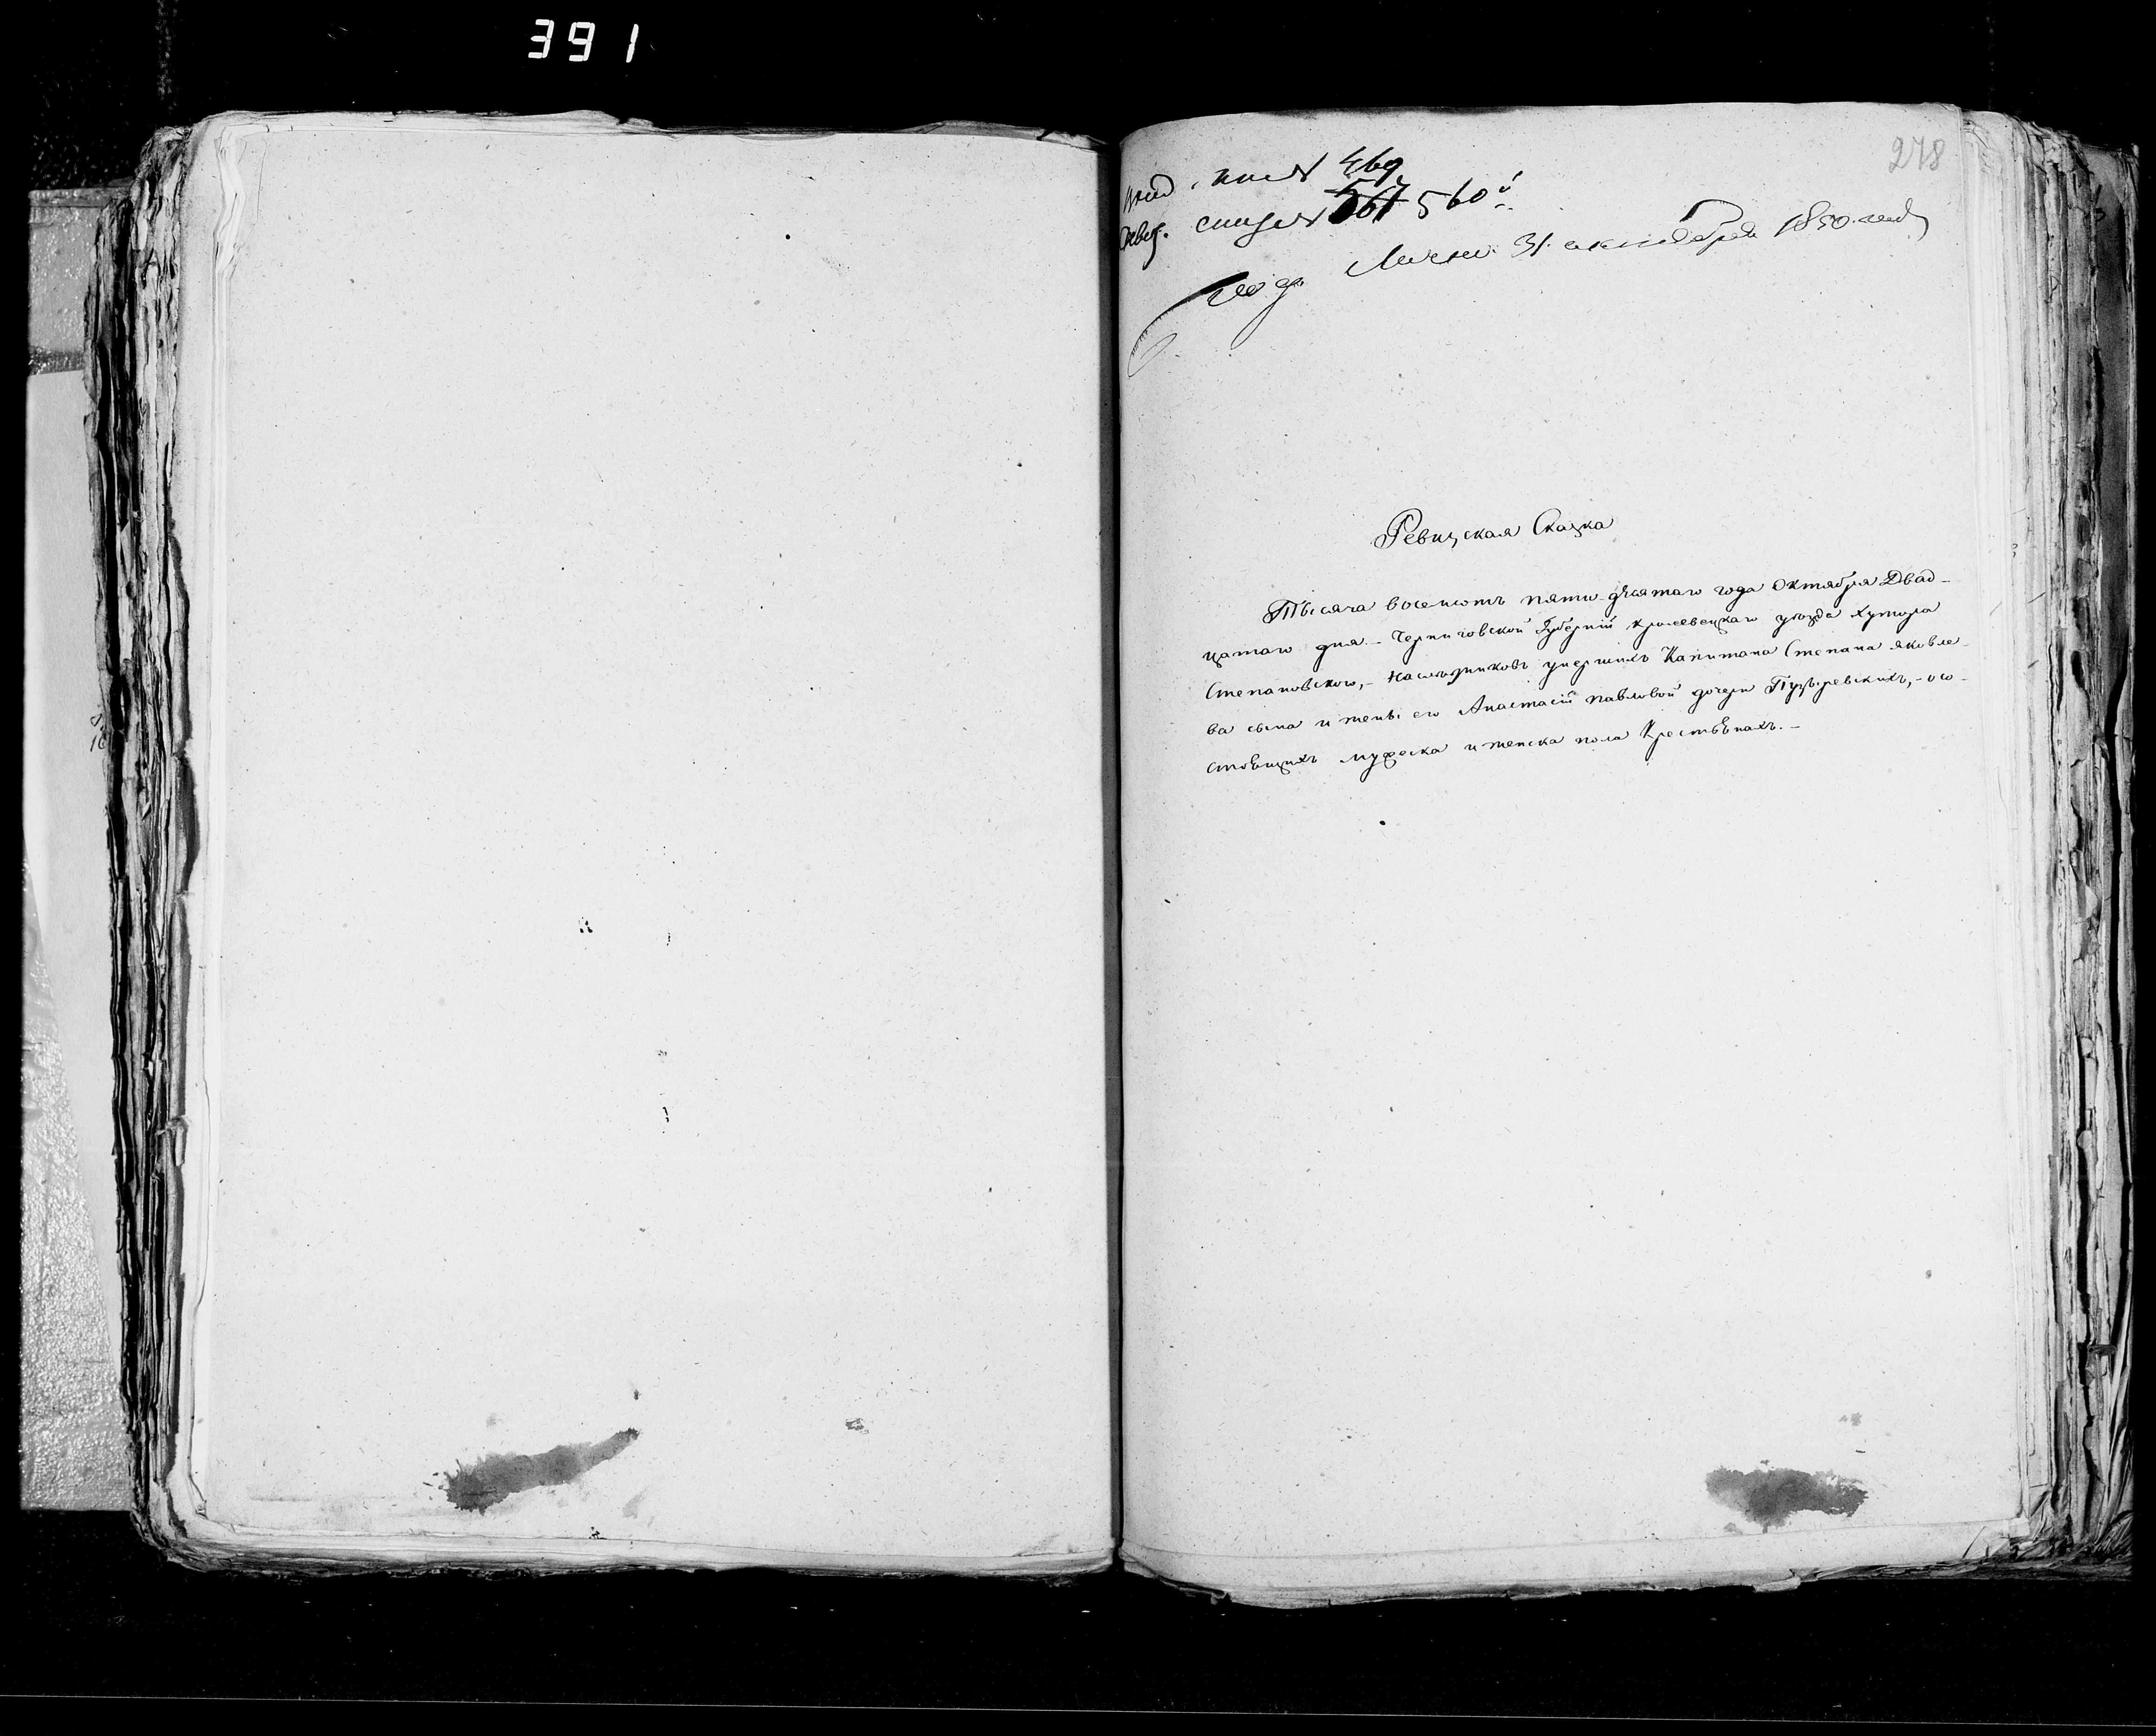 391
278
469
560й
31. октября 1850. года
Ревизская Сказка
Тысяча восемсотъ пяти-десятаго года Октября Двад-
цатаго дня. – Черниговской Губерніи кролевецкаго уѣзда хутора
Степановского, – наслѣдниковъ умершихъ Капитана Степана яковле-
ва сына и жены его Анастасіи павловой дочери Пузыревскихъ, – о со-
стоѣщихъ мужеска и женска пола Крестьѣнахъ. –